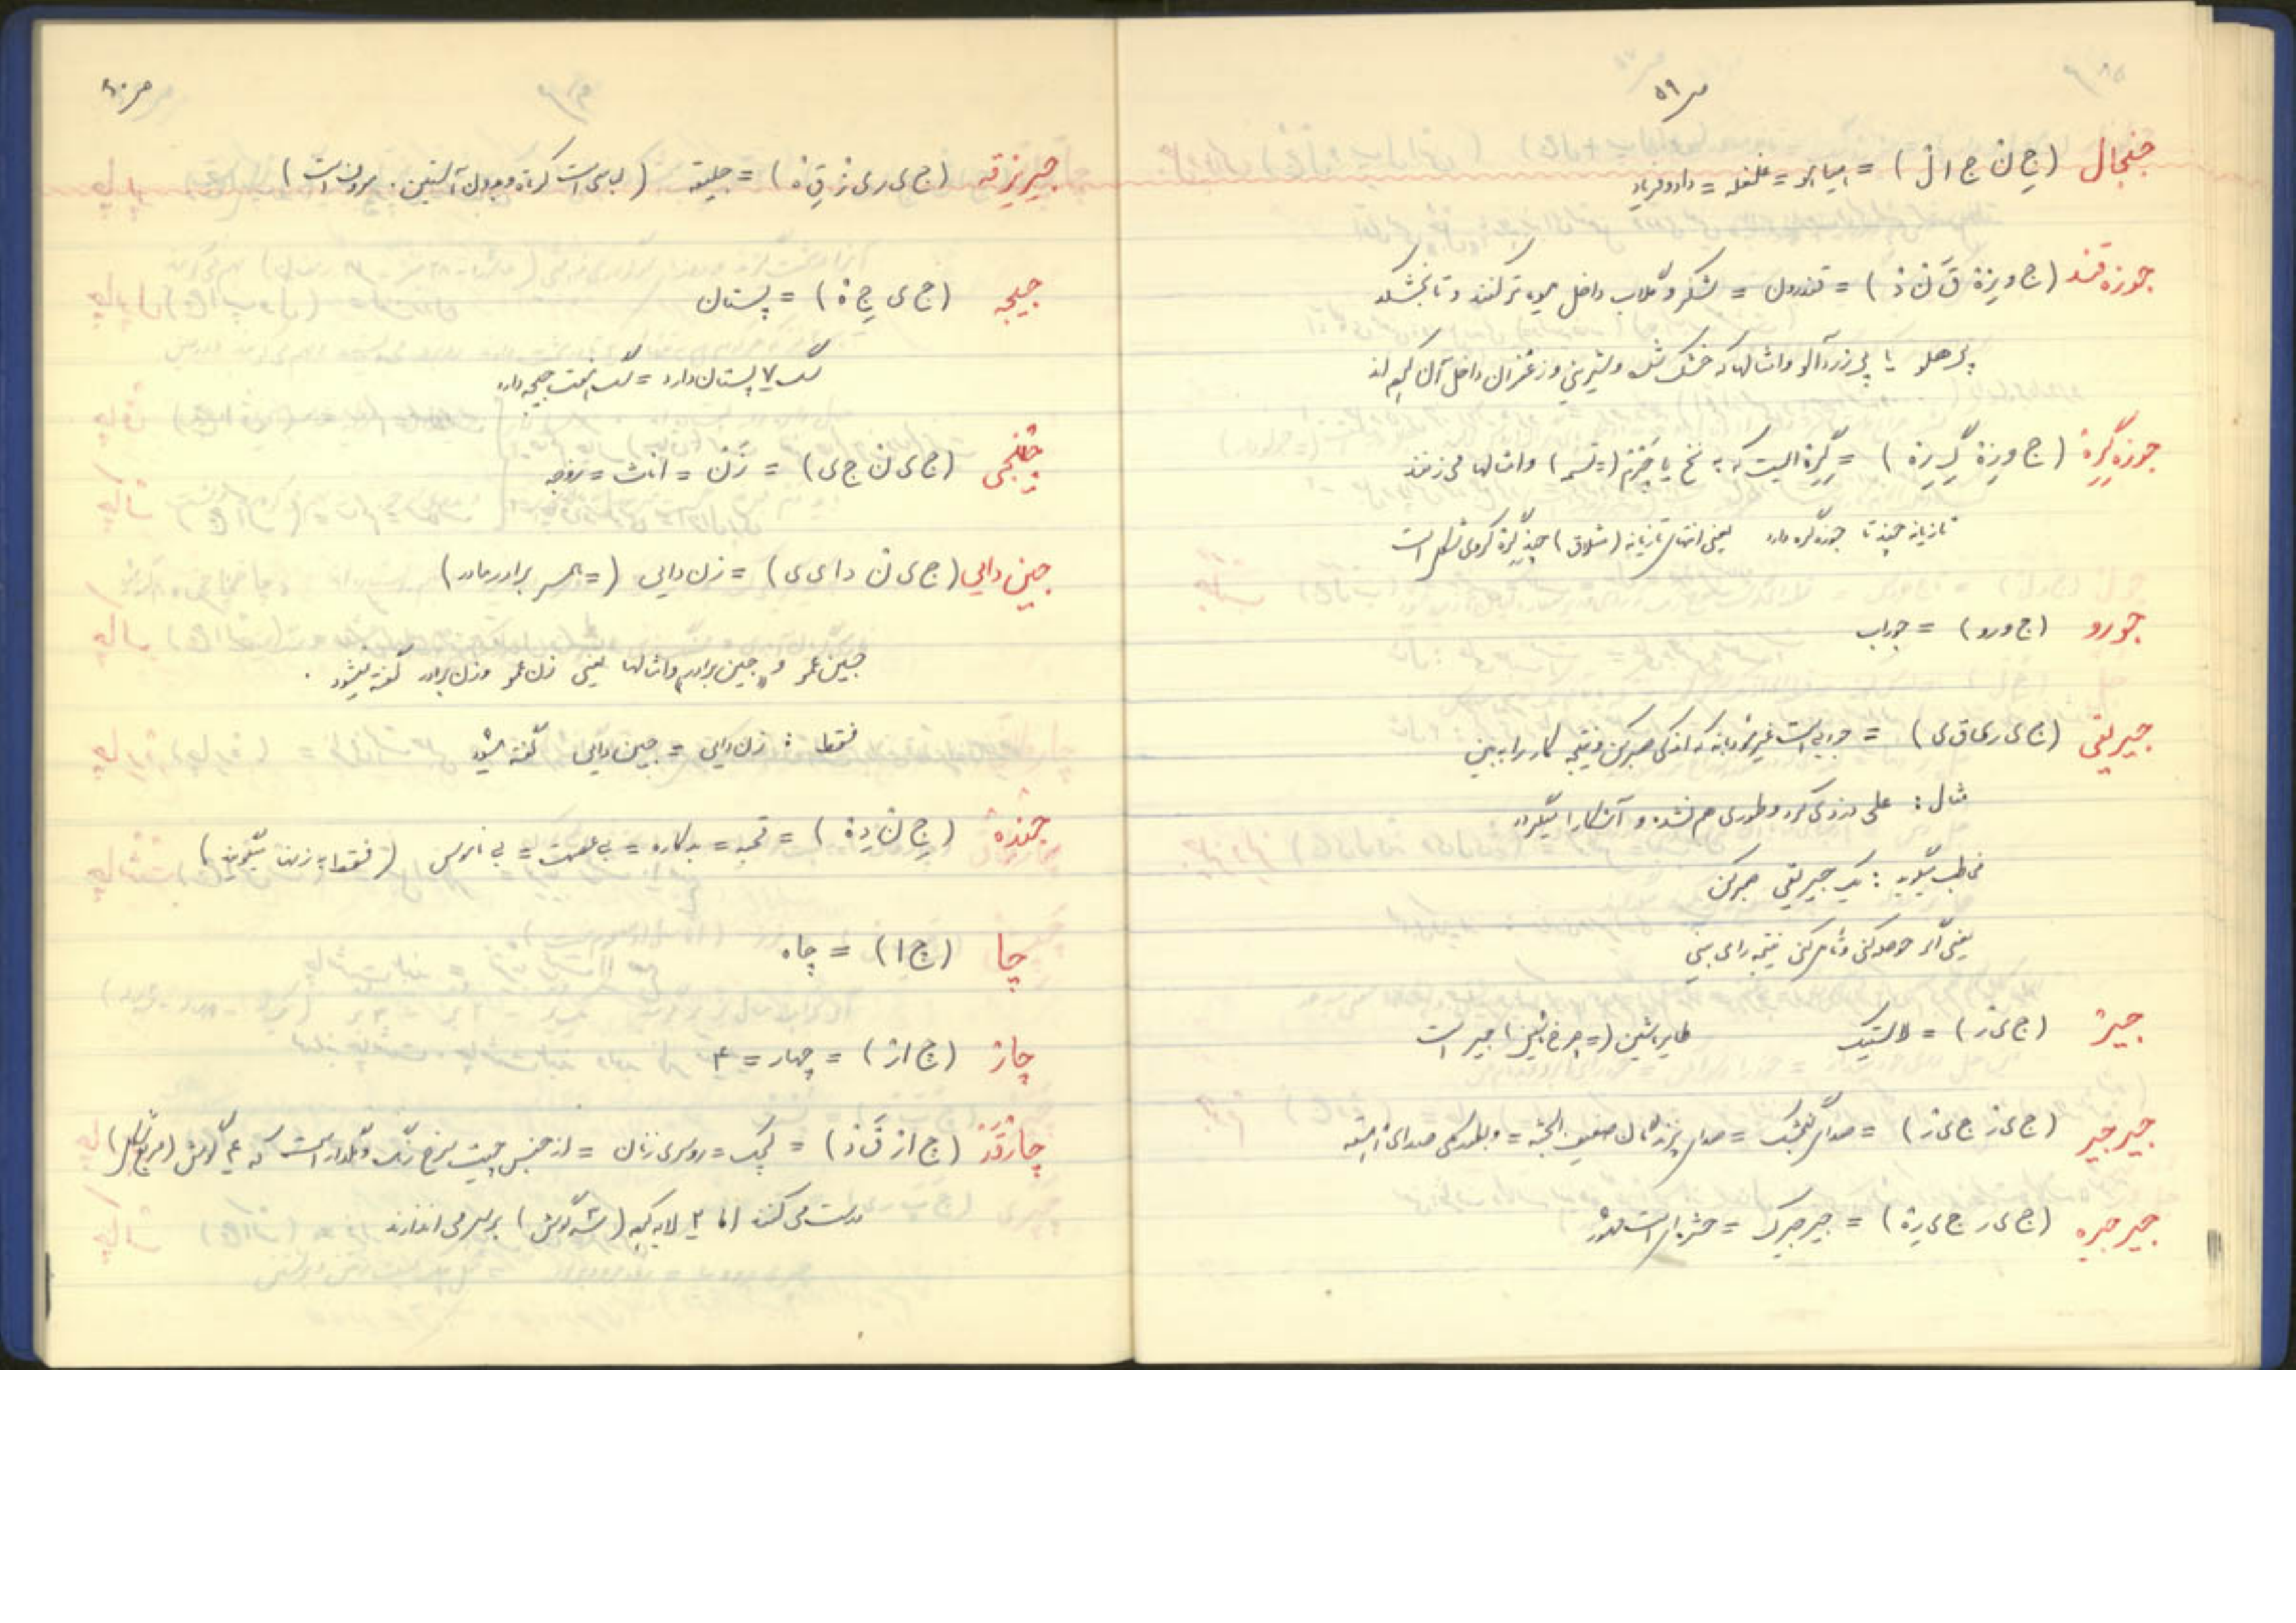 ص ۵۹
جنجال (جِ نْ ج ا لْ) = هیاهو = غلغله = داد و فریاد
جوزه قند (ج و زِهْ قَ نْ دْ) = قندرون = شکر و گلاب داخل میوه تر کنند و تا بخشکد
پر هلو یا پر زردآلو و امثالها که خشک شده و شیرینی و زعفران داخل آن
جوزه گِرِهْ (ج و زِهْ گِ رِهْ) = گِرِهْ ایست که به نخ یا چَرم (= تسمه) و امثالها می زنند
تازیانه چند تا جوزه گره دارد یعنی انتهای تازیانه (شلاق) چند گره کروی شکل است
جورو (ج و ر و) = جوراب
جیریقی (ج ی ر ی ق ی) = جوریست غیر مؤدبانه که اندکی صبر کن و نتیجه کار را ببین
مثال : علی دزدی کرد و طوری هم نشده و آشکارا میگردد
مخاطب میگوید : یک جیریقی صبر کن
یعنی اگر حوصله کنی و تأمل کنی نتیجه را می بینی
جیرْ (ج ی رْ) = لاستیک طایر ماشین (= چرخ ماشین) جیر است
جیر جیر (ج ی رْ ج ی رْ) = صدای گنجشک = صدای پرندگان ضعیف الجثه = و بطور کلی صدای آهسته
جیر جیره (ج ی ر ج ی رِهْ) = جیرجیرک = حشره ای است
ص ۶۰
جیریزقه (ج ی ر ی زْ قِ هْ) = جلیقه (لباسی است کوتاه و بدون آستین . است)
جیجه (ج ی جِ هْ) = پستان
سگ ۷ پستان دارد = سگ هفت جیجه دارد
جینجی (ج ی نْ ج ی) = زَنْ = اناث = زوجه
جین دایی (ج ی نْ د ا ی ی) = زن دایی (= همسر برادر مادر)
جین عمو و «جین برادر» و امثالها یعنی زن عمو و زن برادر گفته نمیشود .
فقط : زن دایی = جین دایی گفته میشود
جِنده (جِ نْ دِهْ) = قحبه = بدکاره = بی عصمت = بی ناموس (فقط به زنها میگویند)
چا (چ ا) = چاه
چارْ (چ ا رْ) = چهار = ۴
چارْقَدْ (چ ا رْ قَ دْ) = لچک = روسری زنان = از جنس چیت سرخ رنگ و گلدار است که ۴ گوش (مربع شکل)
درست می کنند اما ۲ لایه که (سه گوش) بر سر می اندازند